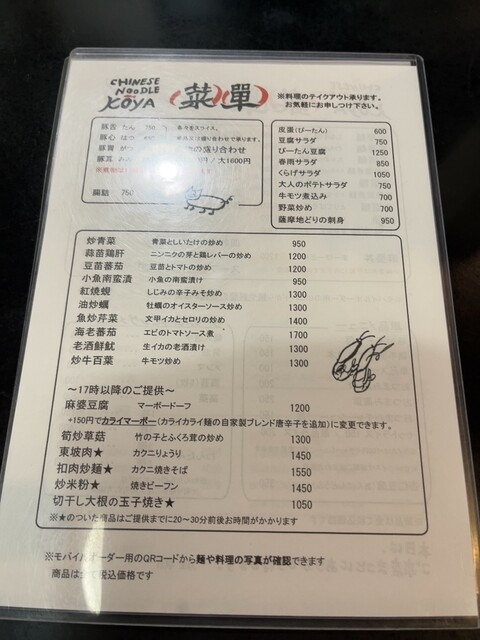 CHINESE
NOODLE
KŌYA
菜單
※料理のテイクアウト承ります。
お気軽にお申しつけ下さい。
豚舌 たん 750
豚心 はつ
豚胃 の盛り合わせ
豚耳 /大1600円
腸詰 750
皮蛋(ぴーたん) 600
豆腐サラダ 750
ぴーたん豆腐 1250
春雨サラダ 850
くらげサラダ 1050
大人のポテトサラダ 750
牛モツ煮込み 700
野菜炒め 700
薩摩地どりの刺身 950
炒青菜 青菜としいたけの炒め 950
蒜苗鶏肝 ニンニクの芽と鶏レバーの炒め 1200
豆苗蕃茄 豆苗とトマトの炒め 1200
小魚南蛮漬 小魚の南蛮漬け 950
紅焼蜆 しじみの辛子みそ炒め 1300
油炒蠣 牡蠣のオイスターソース炒め 1300
魚炒芹菜 文甲イカとセロリの炒め 1400
海老蕃茄 エビのトマトソース煮 1700
老酒鮮魷 生イカの老酒漬け 1300
炒牛百葉 牛モツ炒め 1300
～17時以降のご提供～
麻婆豆腐 マーボードーフ 1200
+150円でカライマーボー(カライカライ麺の自家製ブレンド唐辛子を追加)に変更できます。
筍炒草菇 竹の子とふくろ茸の炒め 1300
東坡肉★ カクニうりょう 1450
扣肉炒麺★ カクニ焼きそば 1550
炒米粉★ 焼きビーフン 1450
切干し大根の玉子焼き★ 1050
※★のついた商品はご提供までに20～30分前後お時間がかかります
※モバイルオーダー用のQRコードから麺や料理の写真が確認できます
商品は全て税込価格です